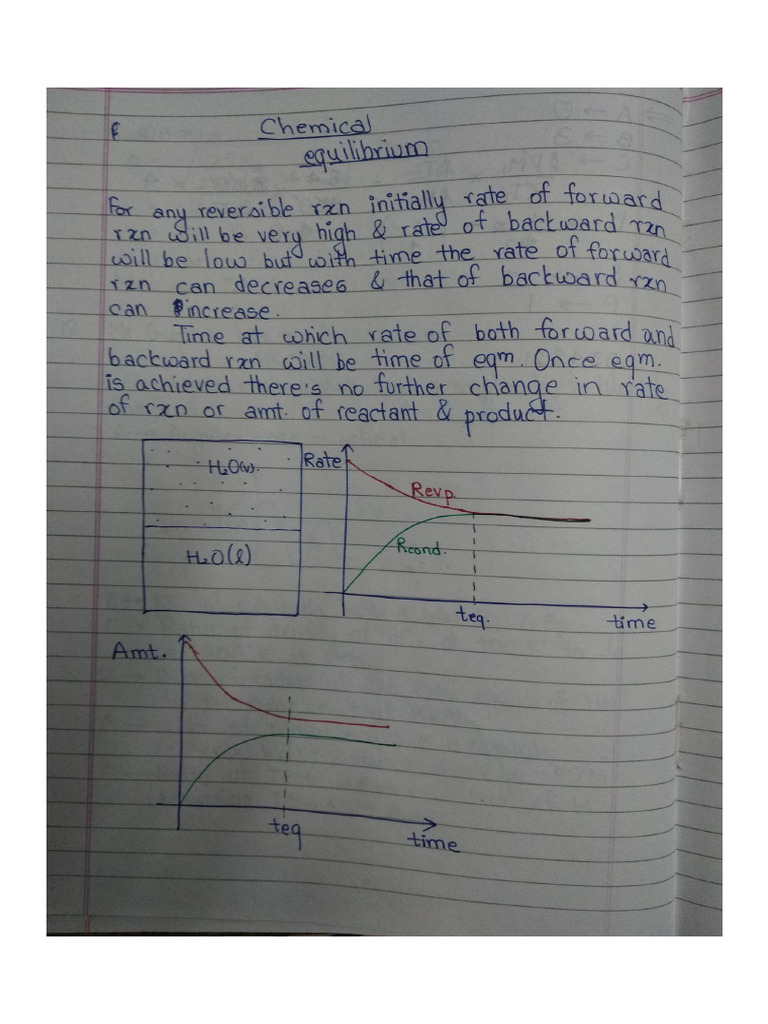 Chemical
equilibrium
For any reversible rxn initially rate of forward
rxn will be very high & rate of backward rxn
will be low but with time the rate of forward
rxn can decreases & that of backward rxn
can increase.
Time at which rate of both forward and
backward rxn will be time of eqm. Once eqm.
is achieved there's no further change in rate
of rxn or amt. of reactant & product.
H₂O(v).
H₂O(l)
Rate
Revp.
Rcond.
teq.
time
Amt.
teq
time